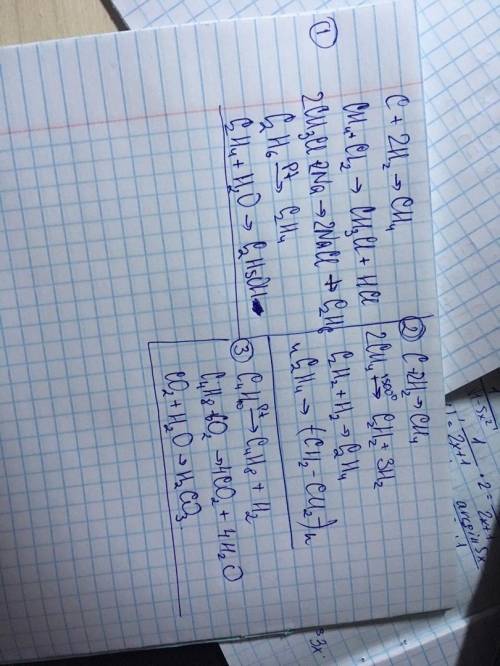 ①
C + 2H₂ → CH₄
CH₄ + Cl₂ → CH₃Cl + HCl
2CH₃Cl + 2Na → 2NaCl + C₂H₆
C₂H₆ Pt→ C₂H₄
C₂H₄ + H₂O → C₂H₅OH
② C + 2H₂ → CH₄
2CH₄ 1500°→ C₂H₂ + 3H₂
C₂H₂ + H₂ → C₂H₄
nC₂H₄ → (CH₂ - CH₂)n
③ C₄H₁₀ Pt→ C₄H₈ + H₂
C₄H₈ + 6O₂ → 4CO₂ + 4H₂O
CO₂ + H₂O → H₂CO₃
arcsin 3x